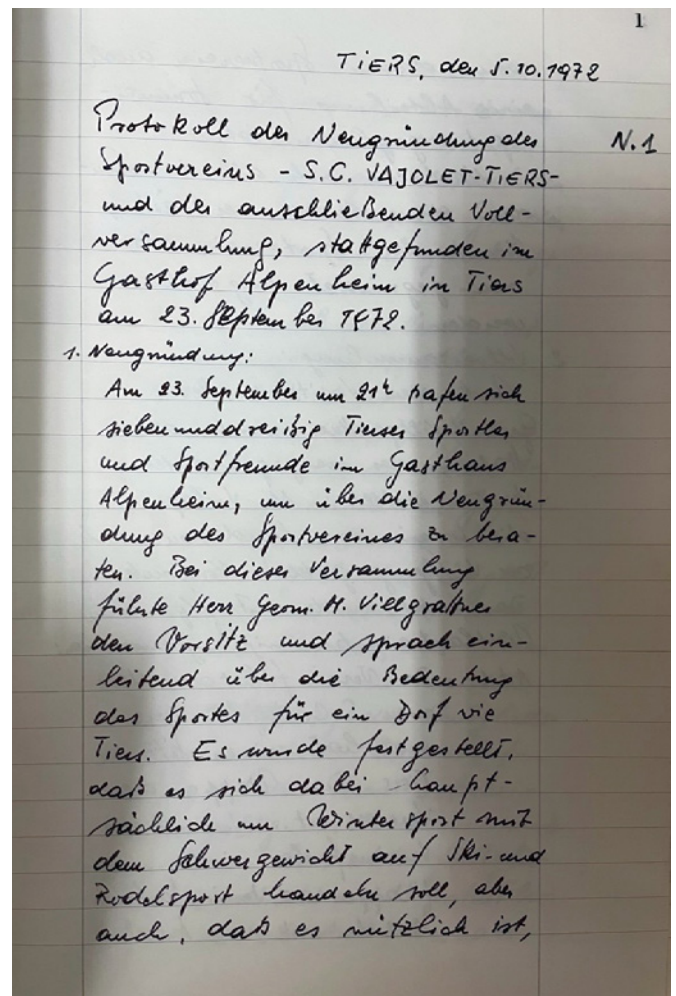 1
TIERS, den 5.10.1972
Protokoll der Neugründung des
N.1
Sportvereins - S.C. VAJOLET-TIERS-
und der anschließenden Voll-
versammlung, stattgefunden im
Gasthof Alpenheim in Tiers
am 23. September 1972.
1. Neugründung:
Am 23. September um 21h trafen sich
siebenunddreißig Tierser Sportler
und Sportfreunde im Gasthaus
Alpenheim, um über die Neugrün-
dung des Sportvereines zu bera-
ten. Bei dieser Versammlung
führte Herr Geom. M. Villgrattner
den Vorsitz und sprach ein-
leitend über die Bedeutung
des Sportes für ein Dorf wie
Tiers. Es wurde festgestellt,
daß es sich dabei haupt-
sächlich um Wintersport mit
dem Schwergewicht auf Ski- und
Rodelsport handeln soll, aber
auch, daß es nützlich ist,